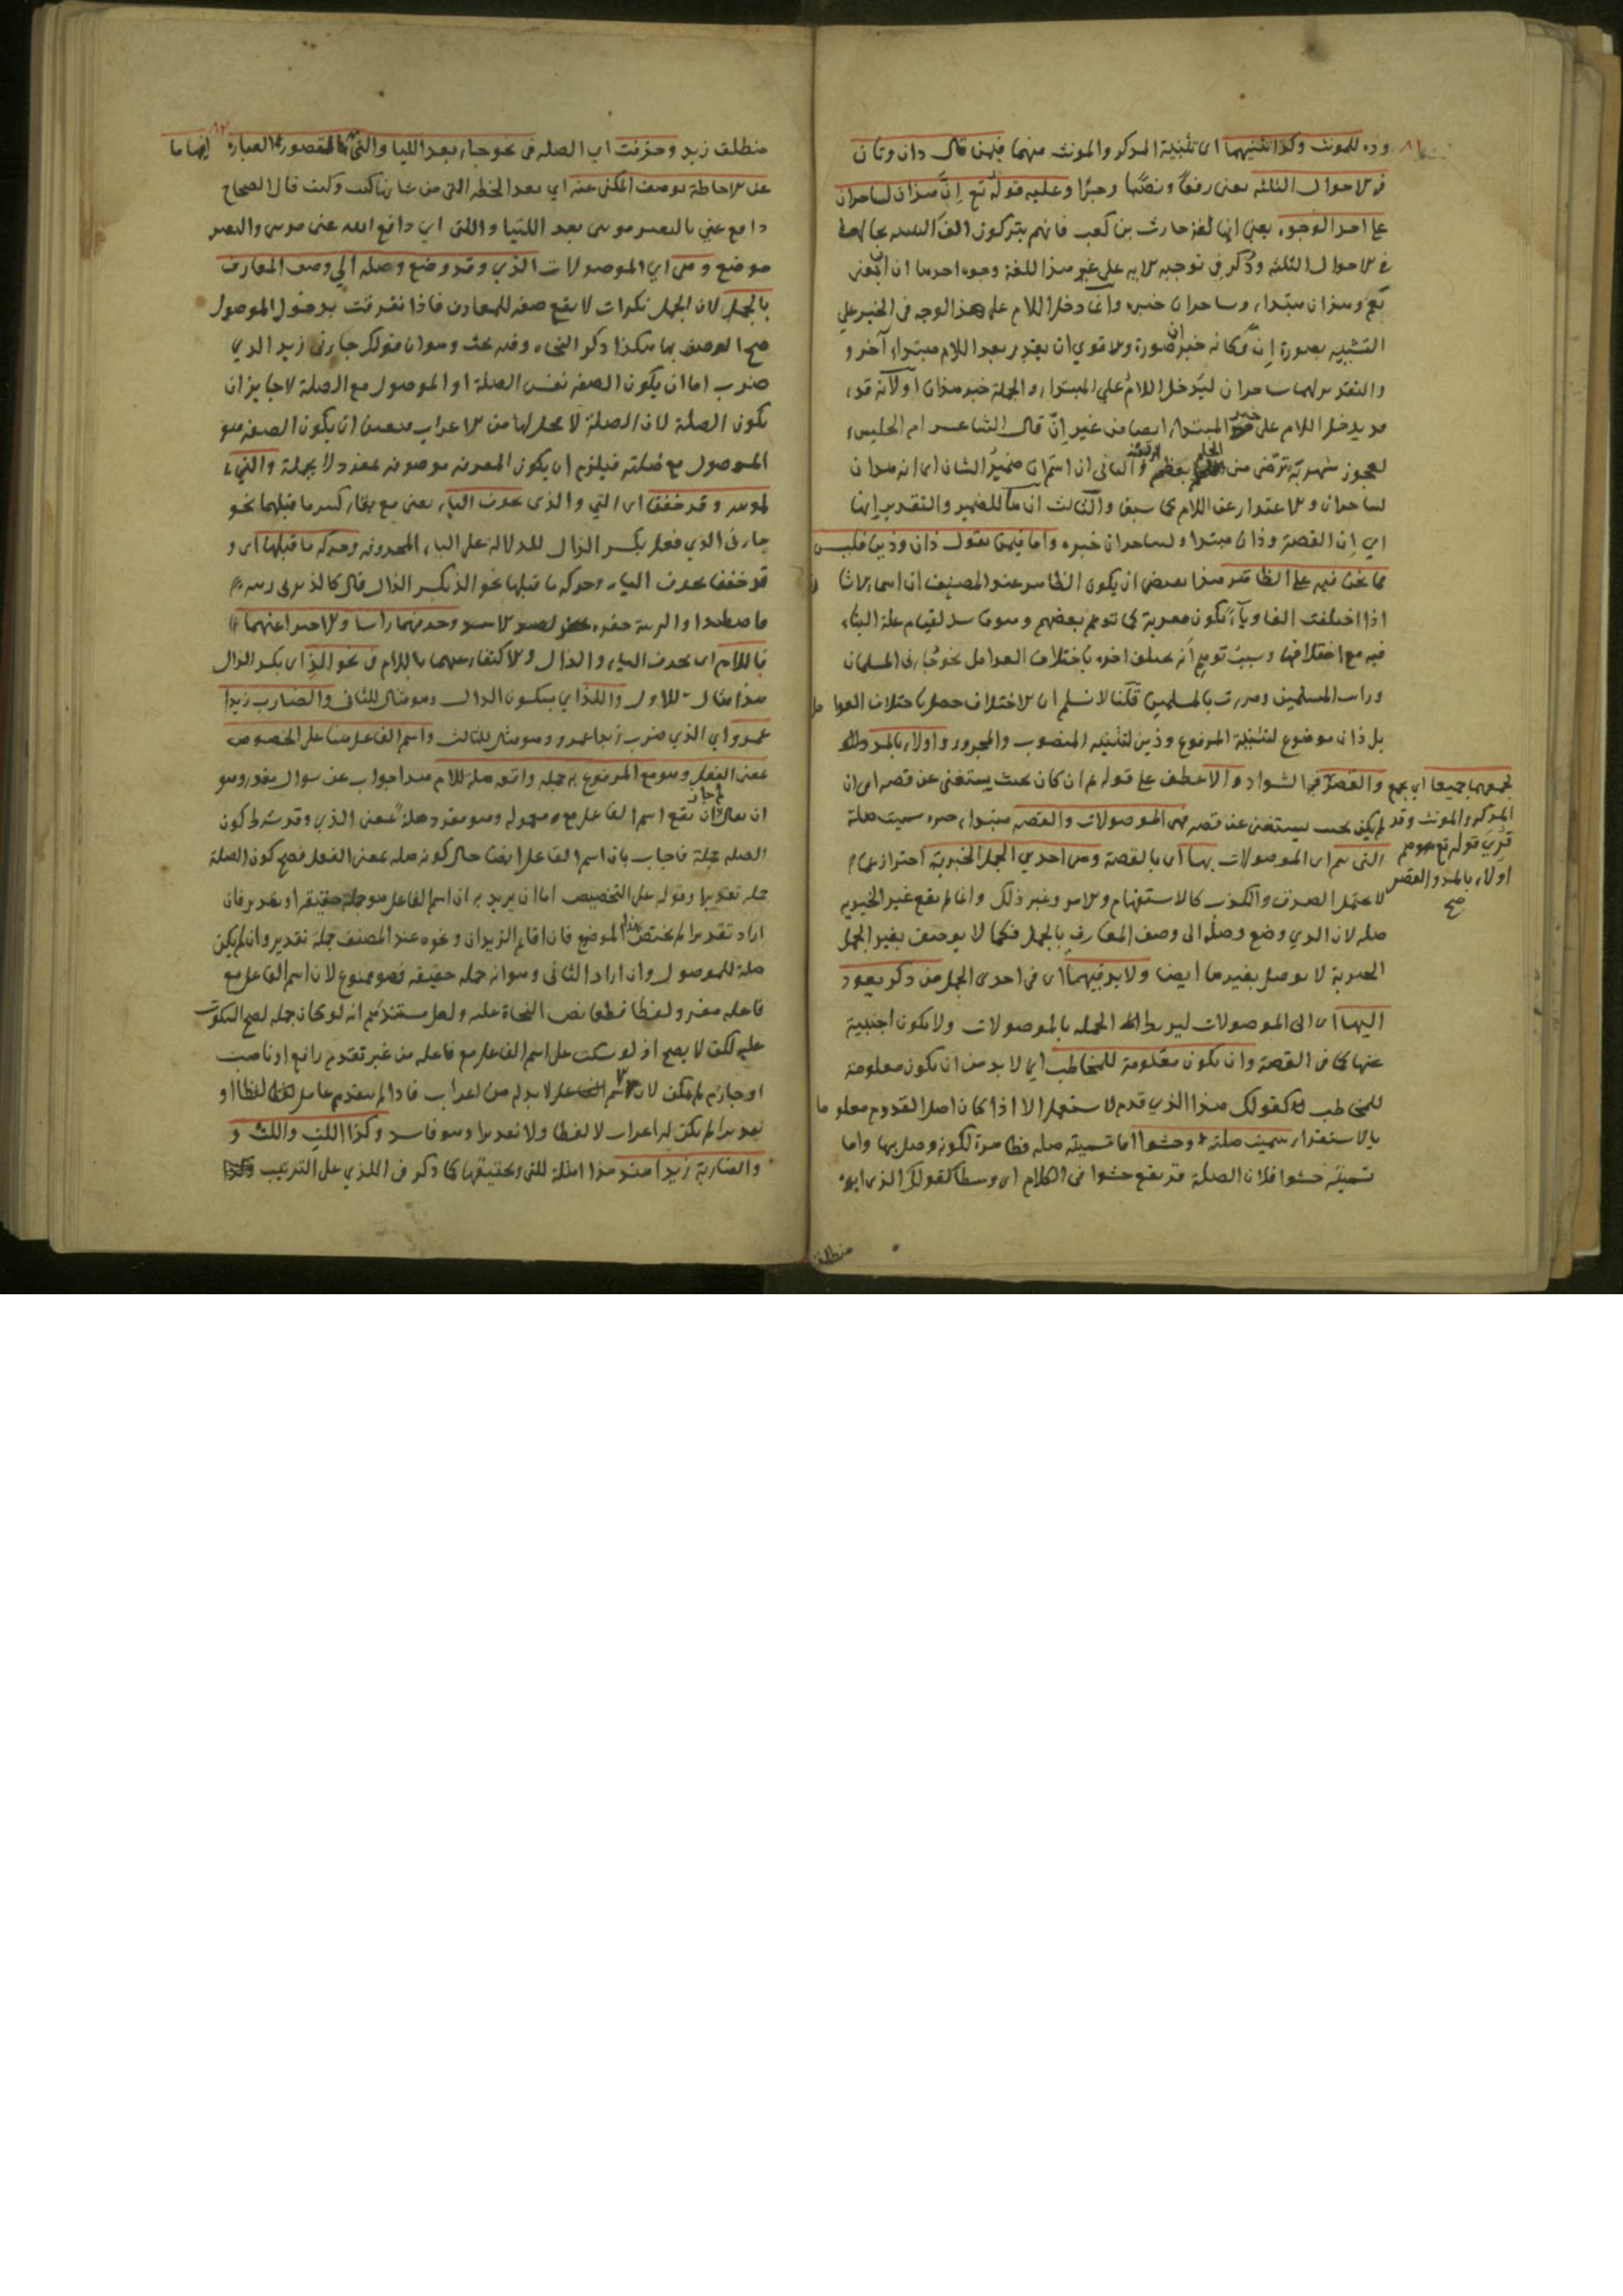 وذه للمونث وكذا تثنيتهما اى تثنية المذكر والمونث منهما فيمن قال ذان وتان
فى الاحوال الثلثه يعنى رفعًا ونصبًا وجرًا وعليه قوله تع اِنَّ هذان لساحران
على احد الوجوه يعني انها لغة حارث بن كعب فانهم يتركون الف التثنيه بحالها
فى الاحوال الثلثه وذكر في توجيه الايه على غير هذا اللغة وجوه احدها ان ان بمعنى
نعم وهذان مبتداء وساحران خبره وانما دخل اللام على هذا الوجه فى الخبر على
التشبيه بصورة اِنّ وكانه خبر ان صورة والاقوي ان يقدر بعد اللام مبتداء آخر و
والتقدير لهما ساحران ليدخل اللامُ علي المبتداء والجملة خبر هذان اولانه قد
قد يدخل اللام على خبر المبتداء ايضا من غير اِنّ قال الشاعر ام الحليس
لعجوز شهربَه ترضى من اللحم بعظم الرقبة والثانى ان اسم ان ضميرُ الشان اى انه هذان
لساحران والاعتذار عن اللام كما سبق والثالث ان ها للضمير والتقدير انها
اي اِن القصة وذان مبتداء ولساحران خبره واما فيمن يقول ذان وذين فليس
مما نحن فيه على الظاهر هذا يقتضى ان يكون الظاهر عند المصنف ان اسماء الاشا ر
اذا اختلفت الفا وياءً تكون معربة كما توهم بعضهم وهو فاسد لقيام علة البناء
فيه مع اختلافها وسبب توهم انه يختلف اخره باختلاف العوامل نحو جاءنى المسلمان
ورايت المسلمين ومررت بالمسلمين قلنا لا نسلم ان الاختلاف حصل باختلاف العوا مل
بل ذان موضوع لتثنية المرفوع وذين لتثنيه المنصوب والمجرور واولاء بالمد
لجمعهما جميعا اي بجمع
المذكر والمونث وقد
قرِئَ قوله تع هم
اولاء بالمد والقصر
صح
والقصر في الشواذ والا عطف على قوله ان كان بحيث يستغنى عن قصه اى ان
لم يكن بحيث يستغنى عن قصه فهى الموصولات والقصه مبتداء خبره سميت صلة
التى تتم اى الموصولات بها اى بالقصة وهى احدي الجمل الخبرية احترازعما
لا يحتمل الصدق والكذب كالاستفهام والامر وغير ذلك وانما لم يقع غير الخبريه
صله لان الذي وضع وصلةً الى وصف المعارف بالجمل فكما لا يوصف بغير الجمل
الخبرية لا يوصل بغيرها ايضا ولا بد فيهما اى فى احدى الجمل من ذكر يعود
اليها اى الى الموصولات ليربط الجمله بالموصولات ولا يكون اجنبية
عنها كما فى القصة وان يكون معلومة للمخاطب اي لا بد من ان يكون معلومة
للمخاطب كقولك هذا الذي قدم لا يستعمل الا اذا كان اصل القدوم معلو ما
بالاستقراء سميت صلة وحشوا اما تسميته صله فظاهرة لكونه وصل بها واما
تسميته حشوا فلان الصلة قد يقع حشوا فى الكلام اى وسطا كقولك الذى ابوه
منطلق
منطلق زيد وحذفت اي الصله فى نحو جاء بعد اللتيا والتى لقصور العبارة ايضا ما
عن الاحاطة بوصف المكنى عنه اي بعد الخطه التى من شانها كيت وكيت قال الصحاح
دافع عني بالنصر موسى بعد اللتيا والتى اي دافع الله عنى موسى والنصر
موضع وهى اي الموصولات الذي وقد وضع وصله الي وصف المعارف
بالجمل لان الجمل نكرات لا يقع صفه للمعارف فاذا تعرفت بدخول الموصول
صح الوصف بها هكذا ذكر النحاه وفيه بحث وهو ان قولك جاءنى زيد الذي
ضرب اما ان يكون الصفه نفس الصلة او الموصول مع الصلة لا جايز ان
يكون الصلة لان الصلة لا محل لها من الاعراب فتعين ان يكون الصفه هو
الموصول مع صلته فيلزم ان يكون المعرفه موصوفه بمفرد لا بجملة والتي
لمونثه وقد خففتا اى التي والذى بحذف الياء يعنى مع بقاء كسر ما قبلها نحو
جاءنى الذي فعل بكسر الذال للدلالة على الياء المحذوفه وحركه ما قبلها اى و
قد خففتا بحذف الياء وحركه ما قبلها نحو الذ بكسر الذال قال كالذ تزبى زبيه
فاصطيدا والزبية حفره وحذفهما راسا والاجتزاء عنهما
باللام اى بحذف الياء والذال والاكتفاء عنهما باللام فى نحو الذِ اى بكسر الذال
هذا مثال للاول والّلذْ اي بسكون الذال وهو مثال للثانى والضارب زيدا
عمرو اي الذي ضرب زيدا عمرو وهو مثال للثالث واسم الفاعل هنا على الخصوص
بمعنى الفعل وهو مع المرفوع به جمله واقعه صلة للام هذا جواب عن سوال مقدر وهو
ان يقال لم جاز ان يقع اسم الفاعل مع معموله وهو مفرد صلة بمعنى الذي وقد شرط كون
الصله جملة فاجاب بان اسم الفاعل ايضا حال كونه صله بمعنى الفعل فصح كون الصلة
جمله تقديرا وقوله على التخصيص اما ان يريد به ان اسم الفاعل هو جملة حقيقه او تقديرا فان
اراد تقديرا لم يختص بهذا الموضع فان اقائم الزيدان ونحوه عند المصنف جملة تقديرا وان لم يكن
صلة للموصول وان اراد الثانى وهو انه جمله حقيقه فهو ممنوع لان اسم الفاعل مع
فاعله مفرد لفظا قطعا بنص النحاة عليه ولعل مستندكم انه لو كان جمله لصح السكوت
عليه لكن لا يصح اذ لو سكت على اسم الفاعل مع فاعله من غير تقدم رافع او ناصب
او جار لم يمكن لان اسم الفاعل لا بد له من اعراب فاذا لم يتقدم عامل لفظا او
تقديرا لم يكن له اعراب لا لفظا ولا تقديرا وهو فاسد وكذا اللتِ واللتْ و
والضاربة زيدا هند هذا امثلة للتى وتحقيقها كما ذكر فى الذي على الترتيب